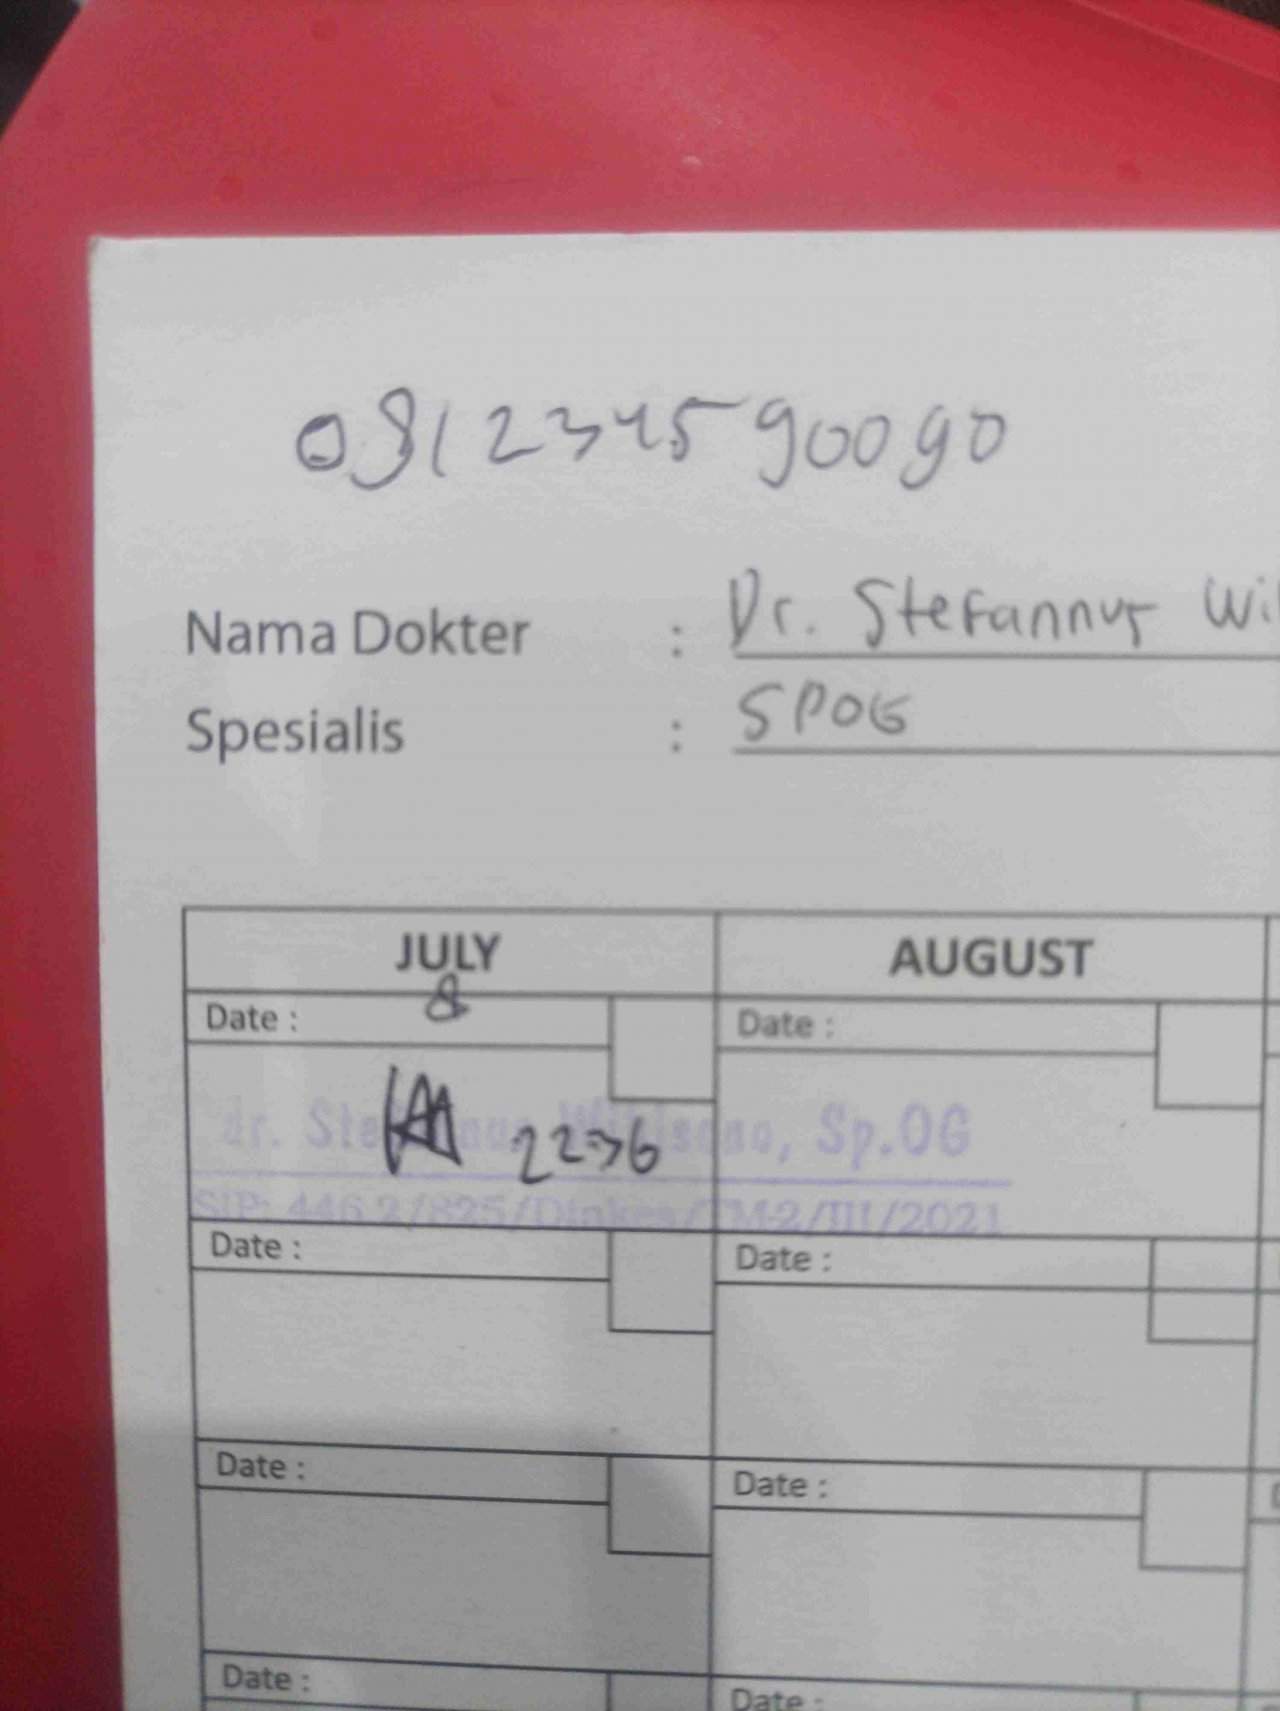 081234590090
Nama Dokter : Dr. Stefannus Wi
Spesialis : SPOG
JULY AUGUST
Date : 8 Date :
dr. Sp.OG
2236
SIP: 446.2/825/Dinkes/TM-2/III/2021
Date : Date :
Date : Date :
Date : Date :